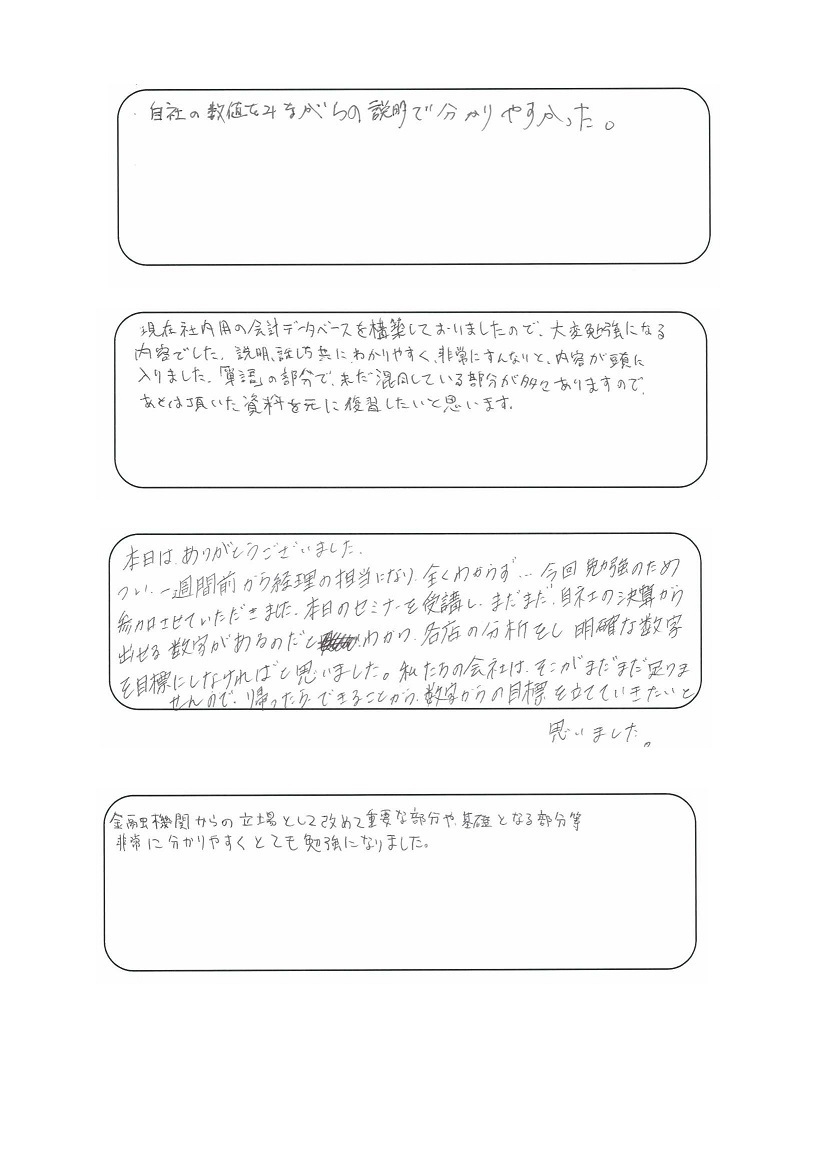 自社の数値をみながらの説明で分かりやすかった。
現在社内用の会計データベースを構築しておりましたので、大変勉強になる
内容でした。説明、話し方共に、わかりやすく、非常にすんなりと、内容が頭に
入りました。「単語」の部分で、未だ混同している部分が多々ありますので、
あとは頂いた資料を元に復習したいと思います。
本日は、ありがとうございました。
つい、一週間前から経理の担当になり、全くわからず… 今回 勉強のため
参加させていただきました。本日のセミナーを受講し、まだまだ、自社の決算から
出せる数字があるのだと わかり、各店の分析をし 明確な数字
を目標にしなければと思いました。私たちの会社は、そこがまだまだ足りま
せんので、帰ったら できることから、数字からの目標を立てていきたいと
思いました。
金融機関からの立場として改めて重要な部分や、基礎となる部分等
非常に分かりやすくとても勉強になりました。